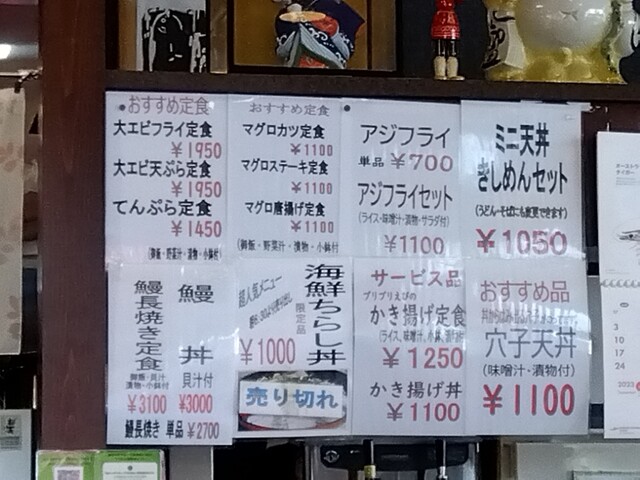 おすすめ定食
大エビフライ定食
¥1950
大エビ天ぷら定食
¥1950
てんぷら定食
¥1450
(御飯・野菜汁・漬物・小鉢付)
おすすめ定食
マグロカツ定食
¥1100
マグロステーキ定食
¥1100
マグロ唐揚げ定食
¥1100
(御飯・野菜汁・漬物・小鉢付)
アジフライ
単品 ¥700
アジフライセット
(ライス・味噌汁・漬物・サラダ付)
¥1100
ミニ天丼
きしめんセット
(うどん・そばにも変更できます)
¥1050
鰻長焼き定食
御飯・貝汁
漬物・小鉢付
¥3100
鰻丼
貝汁付
¥3000
鰻長焼き 単品 ¥2700
海鮮ちらし丼
限定品
超人気メニュー
¥1000
売り切れ
サービス品
プリプリえびの
かき揚げ定食
¥1250
かき揚げ丼
¥1100
おすすめ品
穴子天丼
(味噌汁・漬物付)
¥1100
3
10
17
24
2023